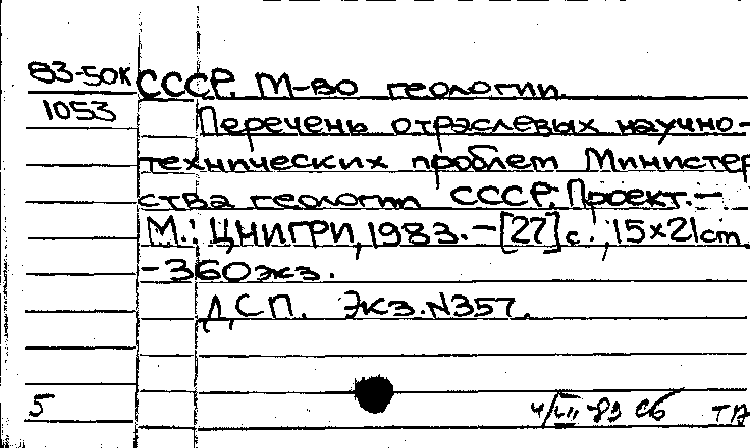 83-50К СССР. М-во геологии.
1053 Перечень отраслевых научно-
технических проблем Министер
ства геологии СССР. Проект.-
М.: ЦНИГРИ, 1983. - [27] с.; 15×21 cm.
- 360 экз.
ДСП. Экз. N357.
5